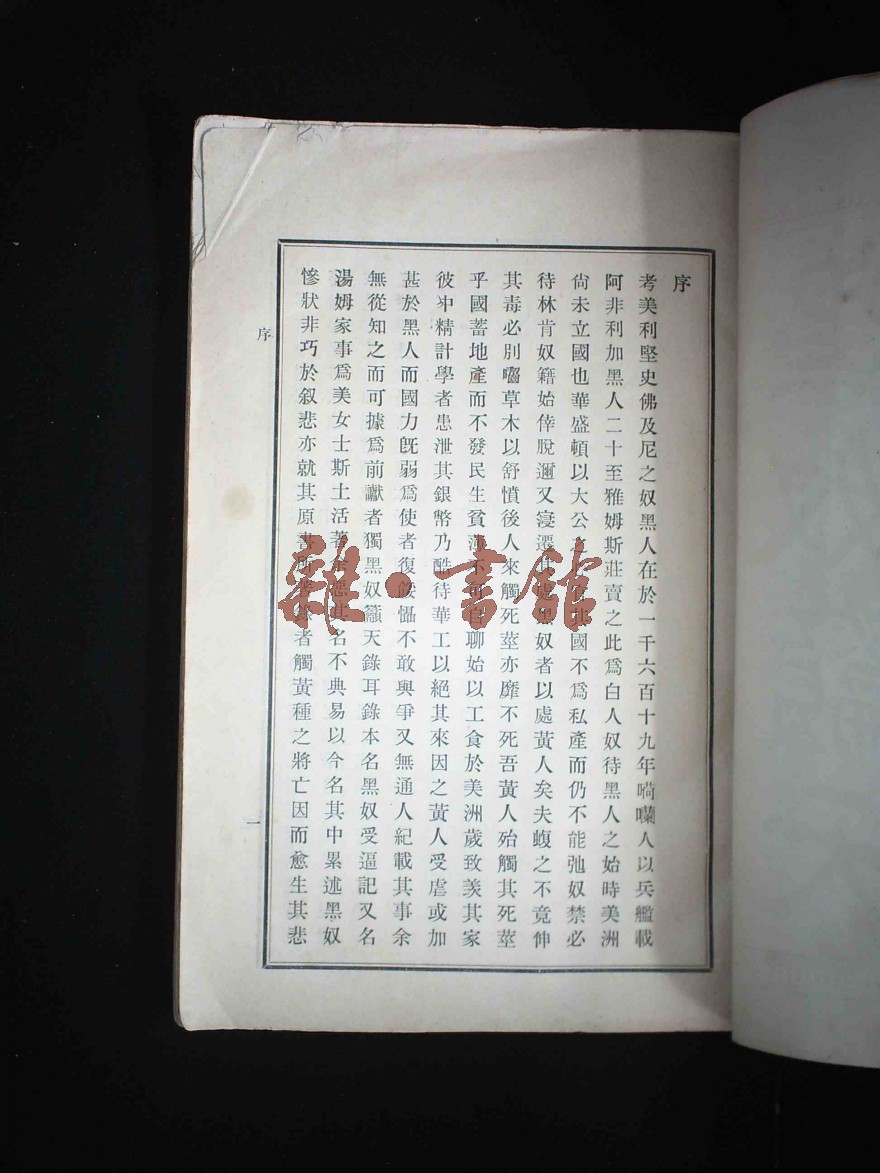 序
考美利堅史佛及尼之奴黑人在於一千六百十九年嗬囒人以兵艦載
阿非利加黑人二十至雅姆斯莊賣之此爲白人奴待黑人之始時美洲
尙未立國也華盛頓以大公之國不爲私產而仍不能弛奴禁必
待林肯奴籍始倖脫邇又寖遷其處黑奴者以處黃人矣夫蝮之不竟伸
其毒必別嚙草木以舒憤後人來觸死莖亦靡不死吾黃人殆觸其死莖
乎國蓄地產而不發民生貧薄不可自聊始以工食於美洲歲致羨其家
彼中精計學者患泄其銀幣乃酷待華工以絕其來因之黃人受虐或加
甚於黑人而國力既弱爲使者復餒懾不敢與爭又無通人紀載其事余
無從知之而可據爲前讞者獨黑奴籲天錄耳錄本名黑奴受逼記又名
湯姆家事爲美女士斯土活著余惡其名不典易以今名其中累述黑奴
慘狀非巧於叙悲亦就其原書所著錄者觸黃種之將亡因而愈生其悲
序
一
雜·書館